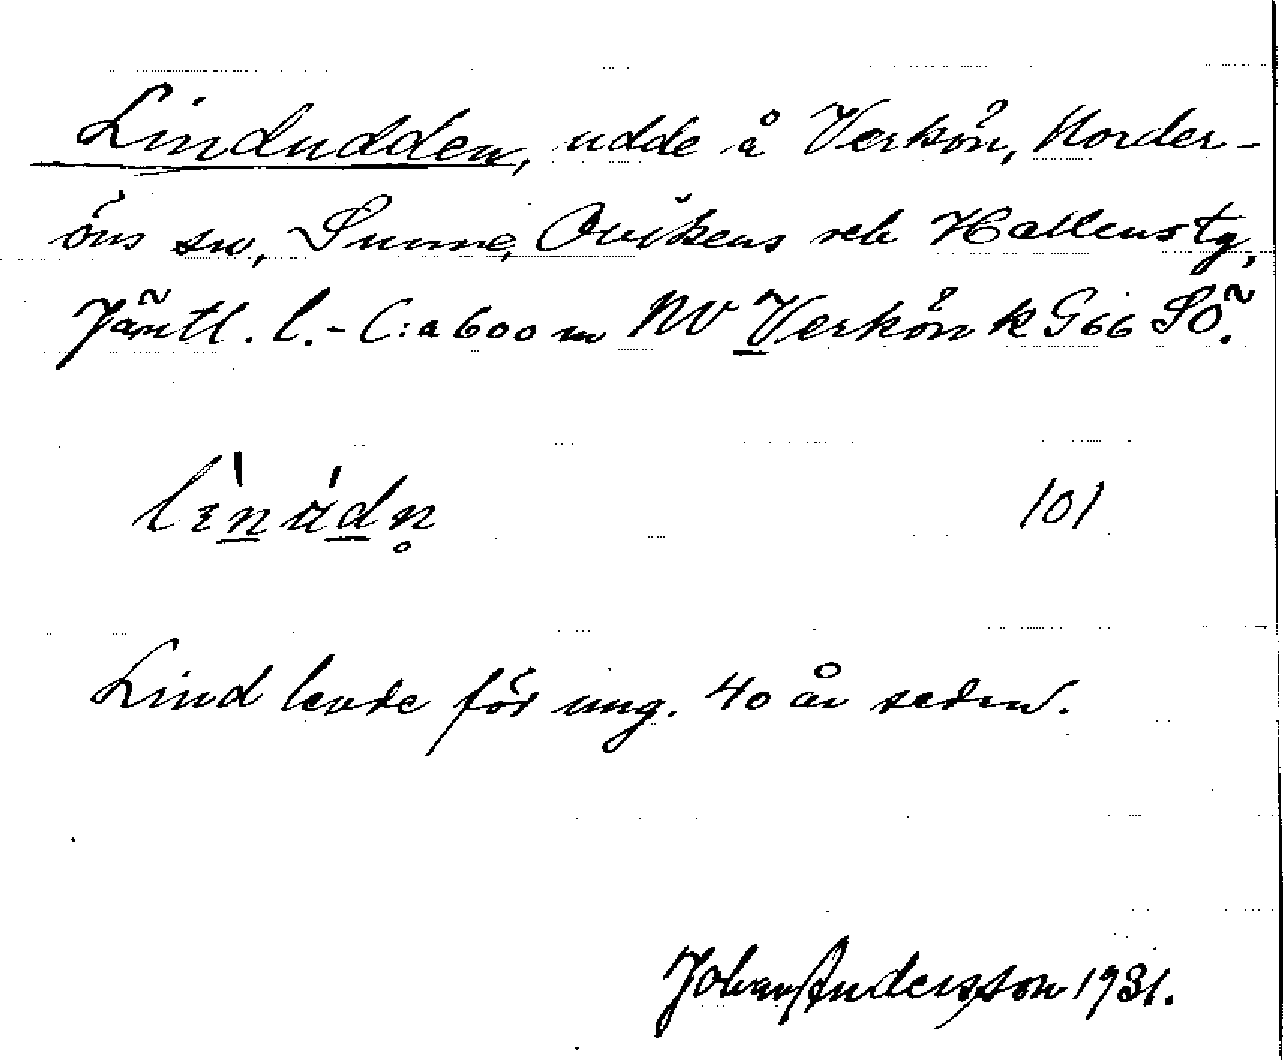 Lindudden, udde å Verkön, Norder-
öns sn, Sunne, Ovikens och Hallens tg,
Jämtl. l. - C:a 600 m NV Verkön k G 66 SÖ.
101
Lind levde för ung. 40 år sedan.
Johan Andersson 1931.